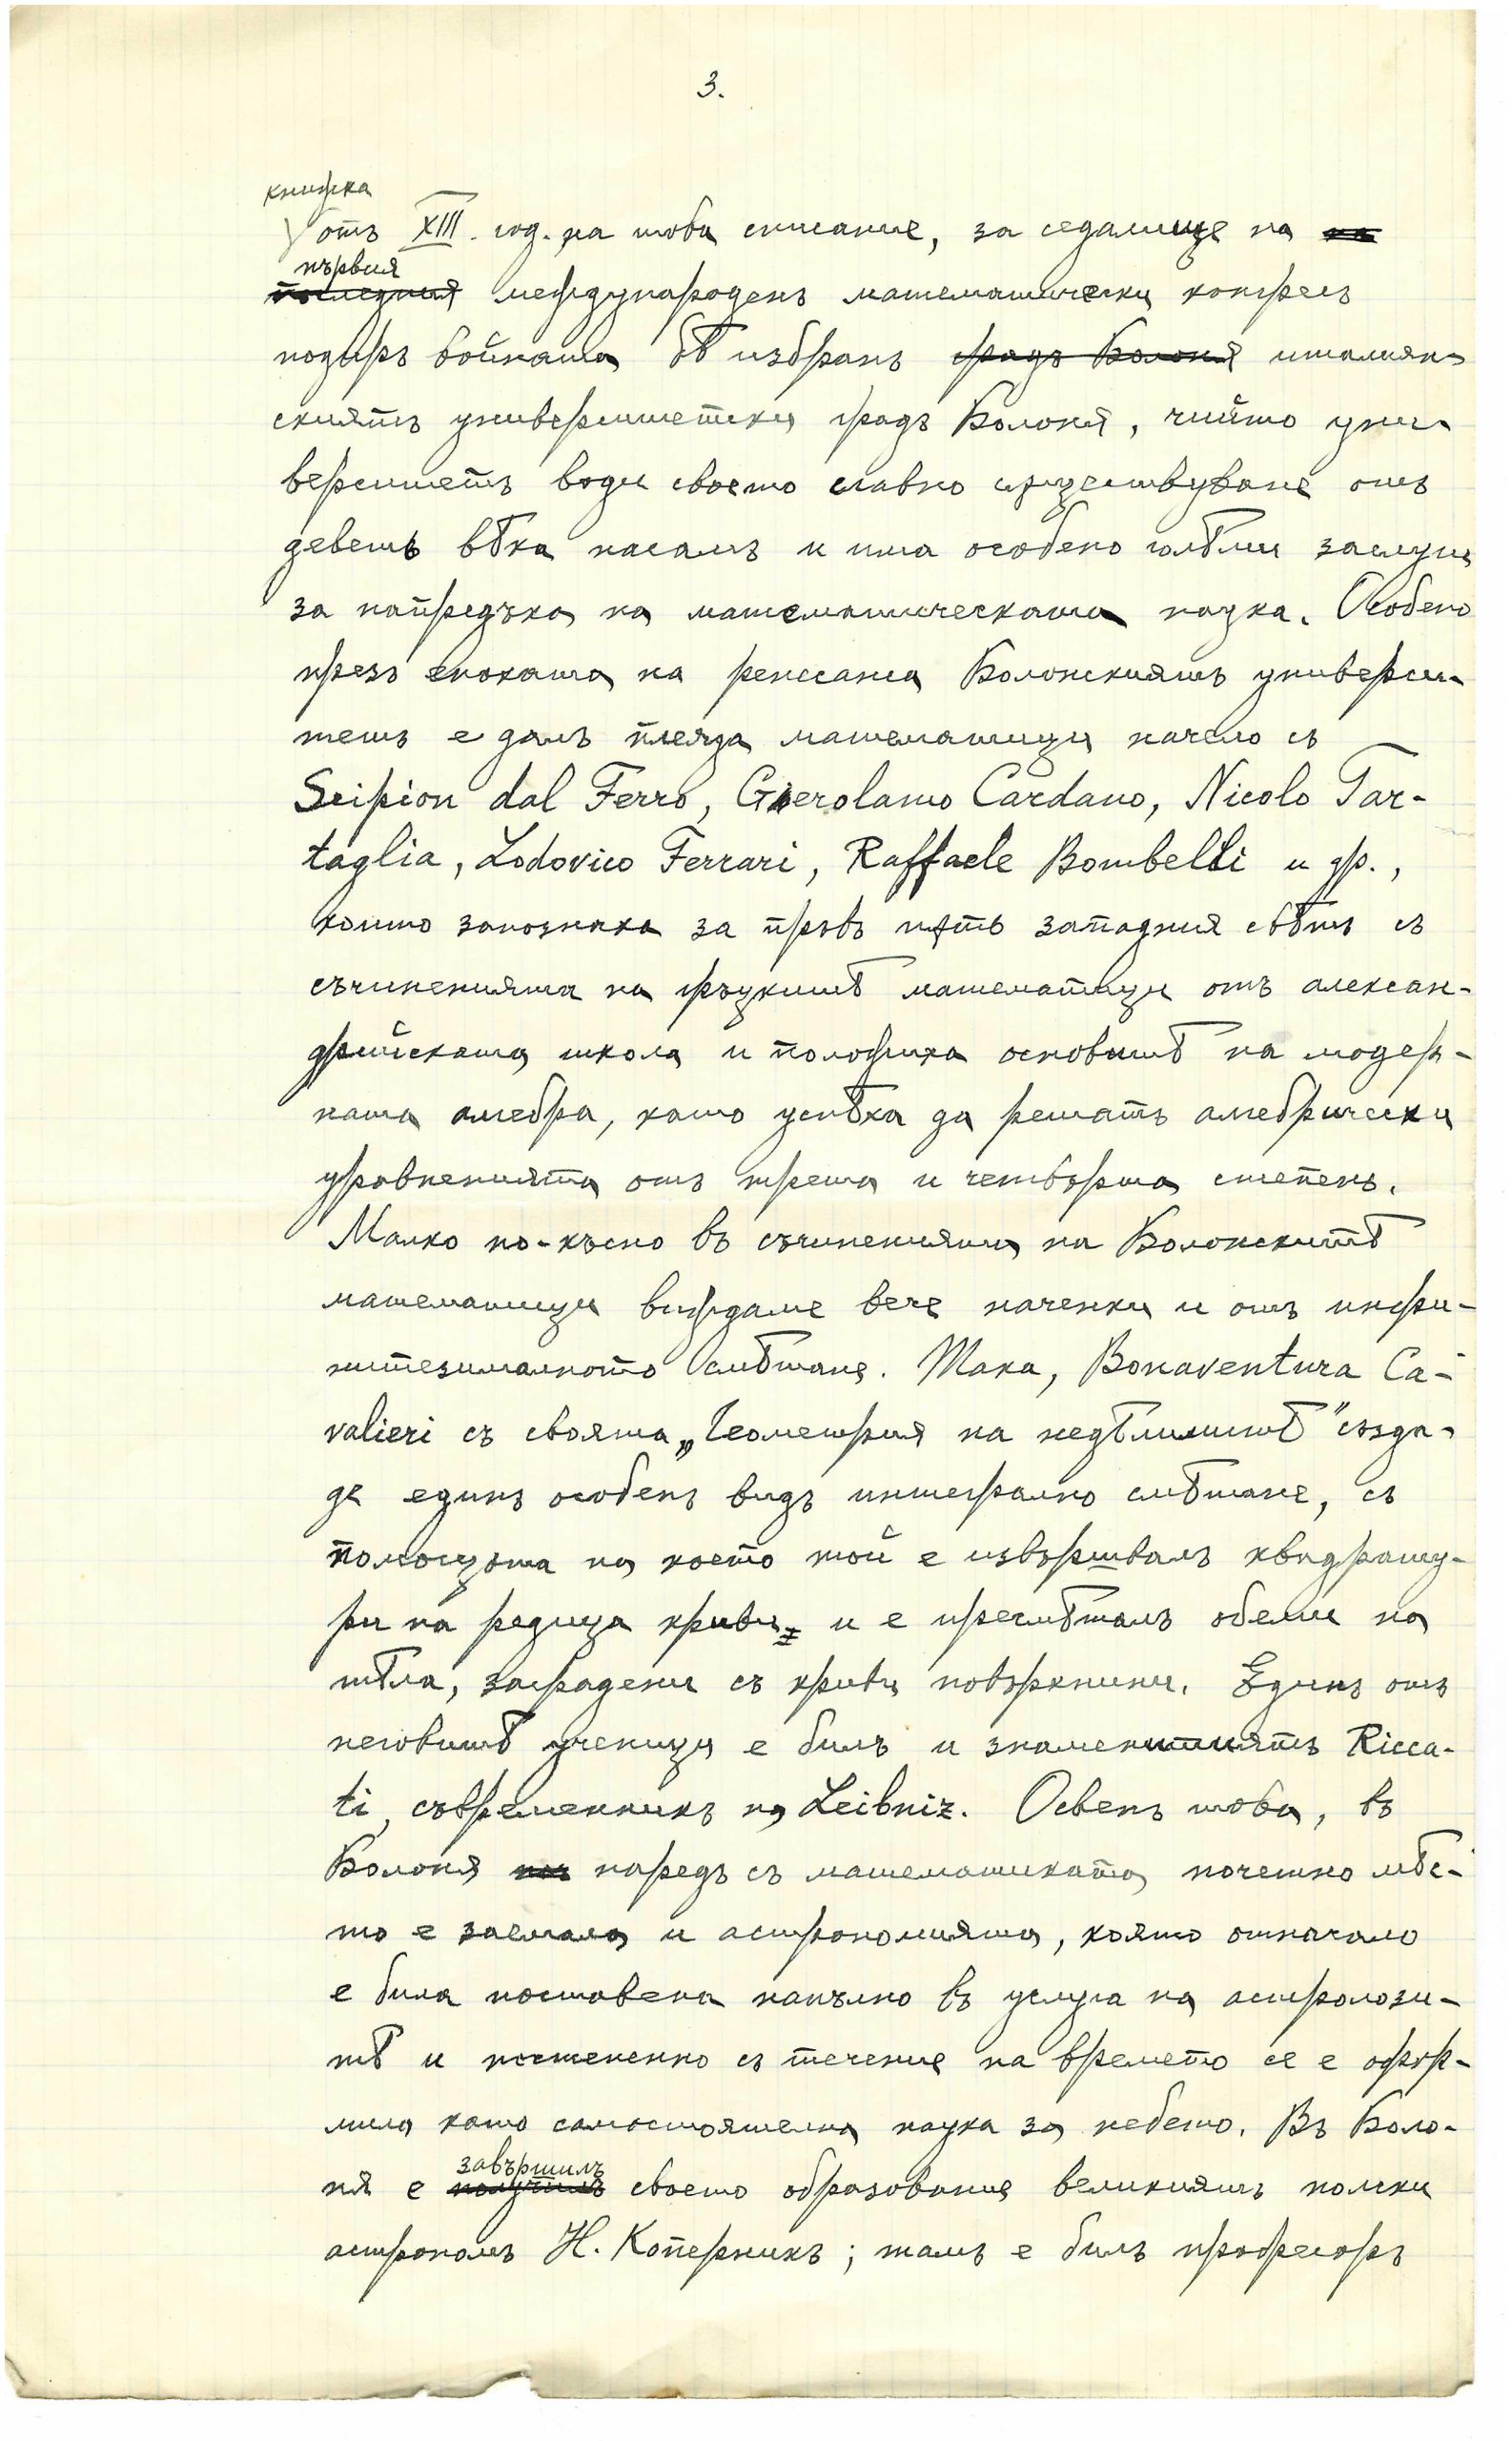 3.
книжка
отъ XIII. год. на това списание, за седалище на на
първия
последния международенъ математически конгресъ
подиръ войната бѣ избранъ градъ Болоня италиян-
скиятъ университетски градъ Болоня, чийто уни-
верситетъ води своето славно сѫществуване отъ
деветь вѣка насамъ и има особено голѣми заслуги
за напредъка на математическата наука. Особено
презъ епохата на ренесанса Болонскиятъ универси-
тетъ е далъ плеяда математици начело съ
Scipion dal Ferro, Gierolamo Cardano, Nicolo Tar-
taglia, Lodovico Ferrari, Raffaele Bombelli и др.,
които запознаха за пръвъ пѫть западния свѣтъ съ
съчиненията на гръцкитѣ математици отъ алексан-
дрийската школа и положиха основитѣ на модер-
ната алгебра, като успѣха да решатъ алгебрически
уравненията отъ трета и четвърта степень.
Малко по-късно въ съчиненията на Болонскитѣ
математици виждаме вече наченки и отъ инфи-
нитезималното смѣтане. Така, Bonaventura Ca-
valieri съ своята „Геометрия на недѣлимитѣ" създа-
де единъ особенъ видъ интегрално смѣтане, съ
помощьта на което той е извършвалъ квадрату-
ри на редица криви и е пресмѣталъ обеми на
тѣла, заградени съ криви повърхнини. Единъ отъ
неговитѣ ученици е билъ и знаменитиятъ Ricca-
ti, съвременникъ на Leibniz. Освенъ това, въ
Болоня наредъ съ математиката почетно мѣс-
то е заемала и астрономията, която отначало
е била поставена напълно въ услуга на астролози-
тѣ и постепенно съ течение на времето се е офор-
мила като самостоятелна наука за небето. Въ Боло-
завършилъ
ня е получилъ своето образование великиятъ полски
астрономъ Н. Коперникъ; тамъ е билъ професоръ